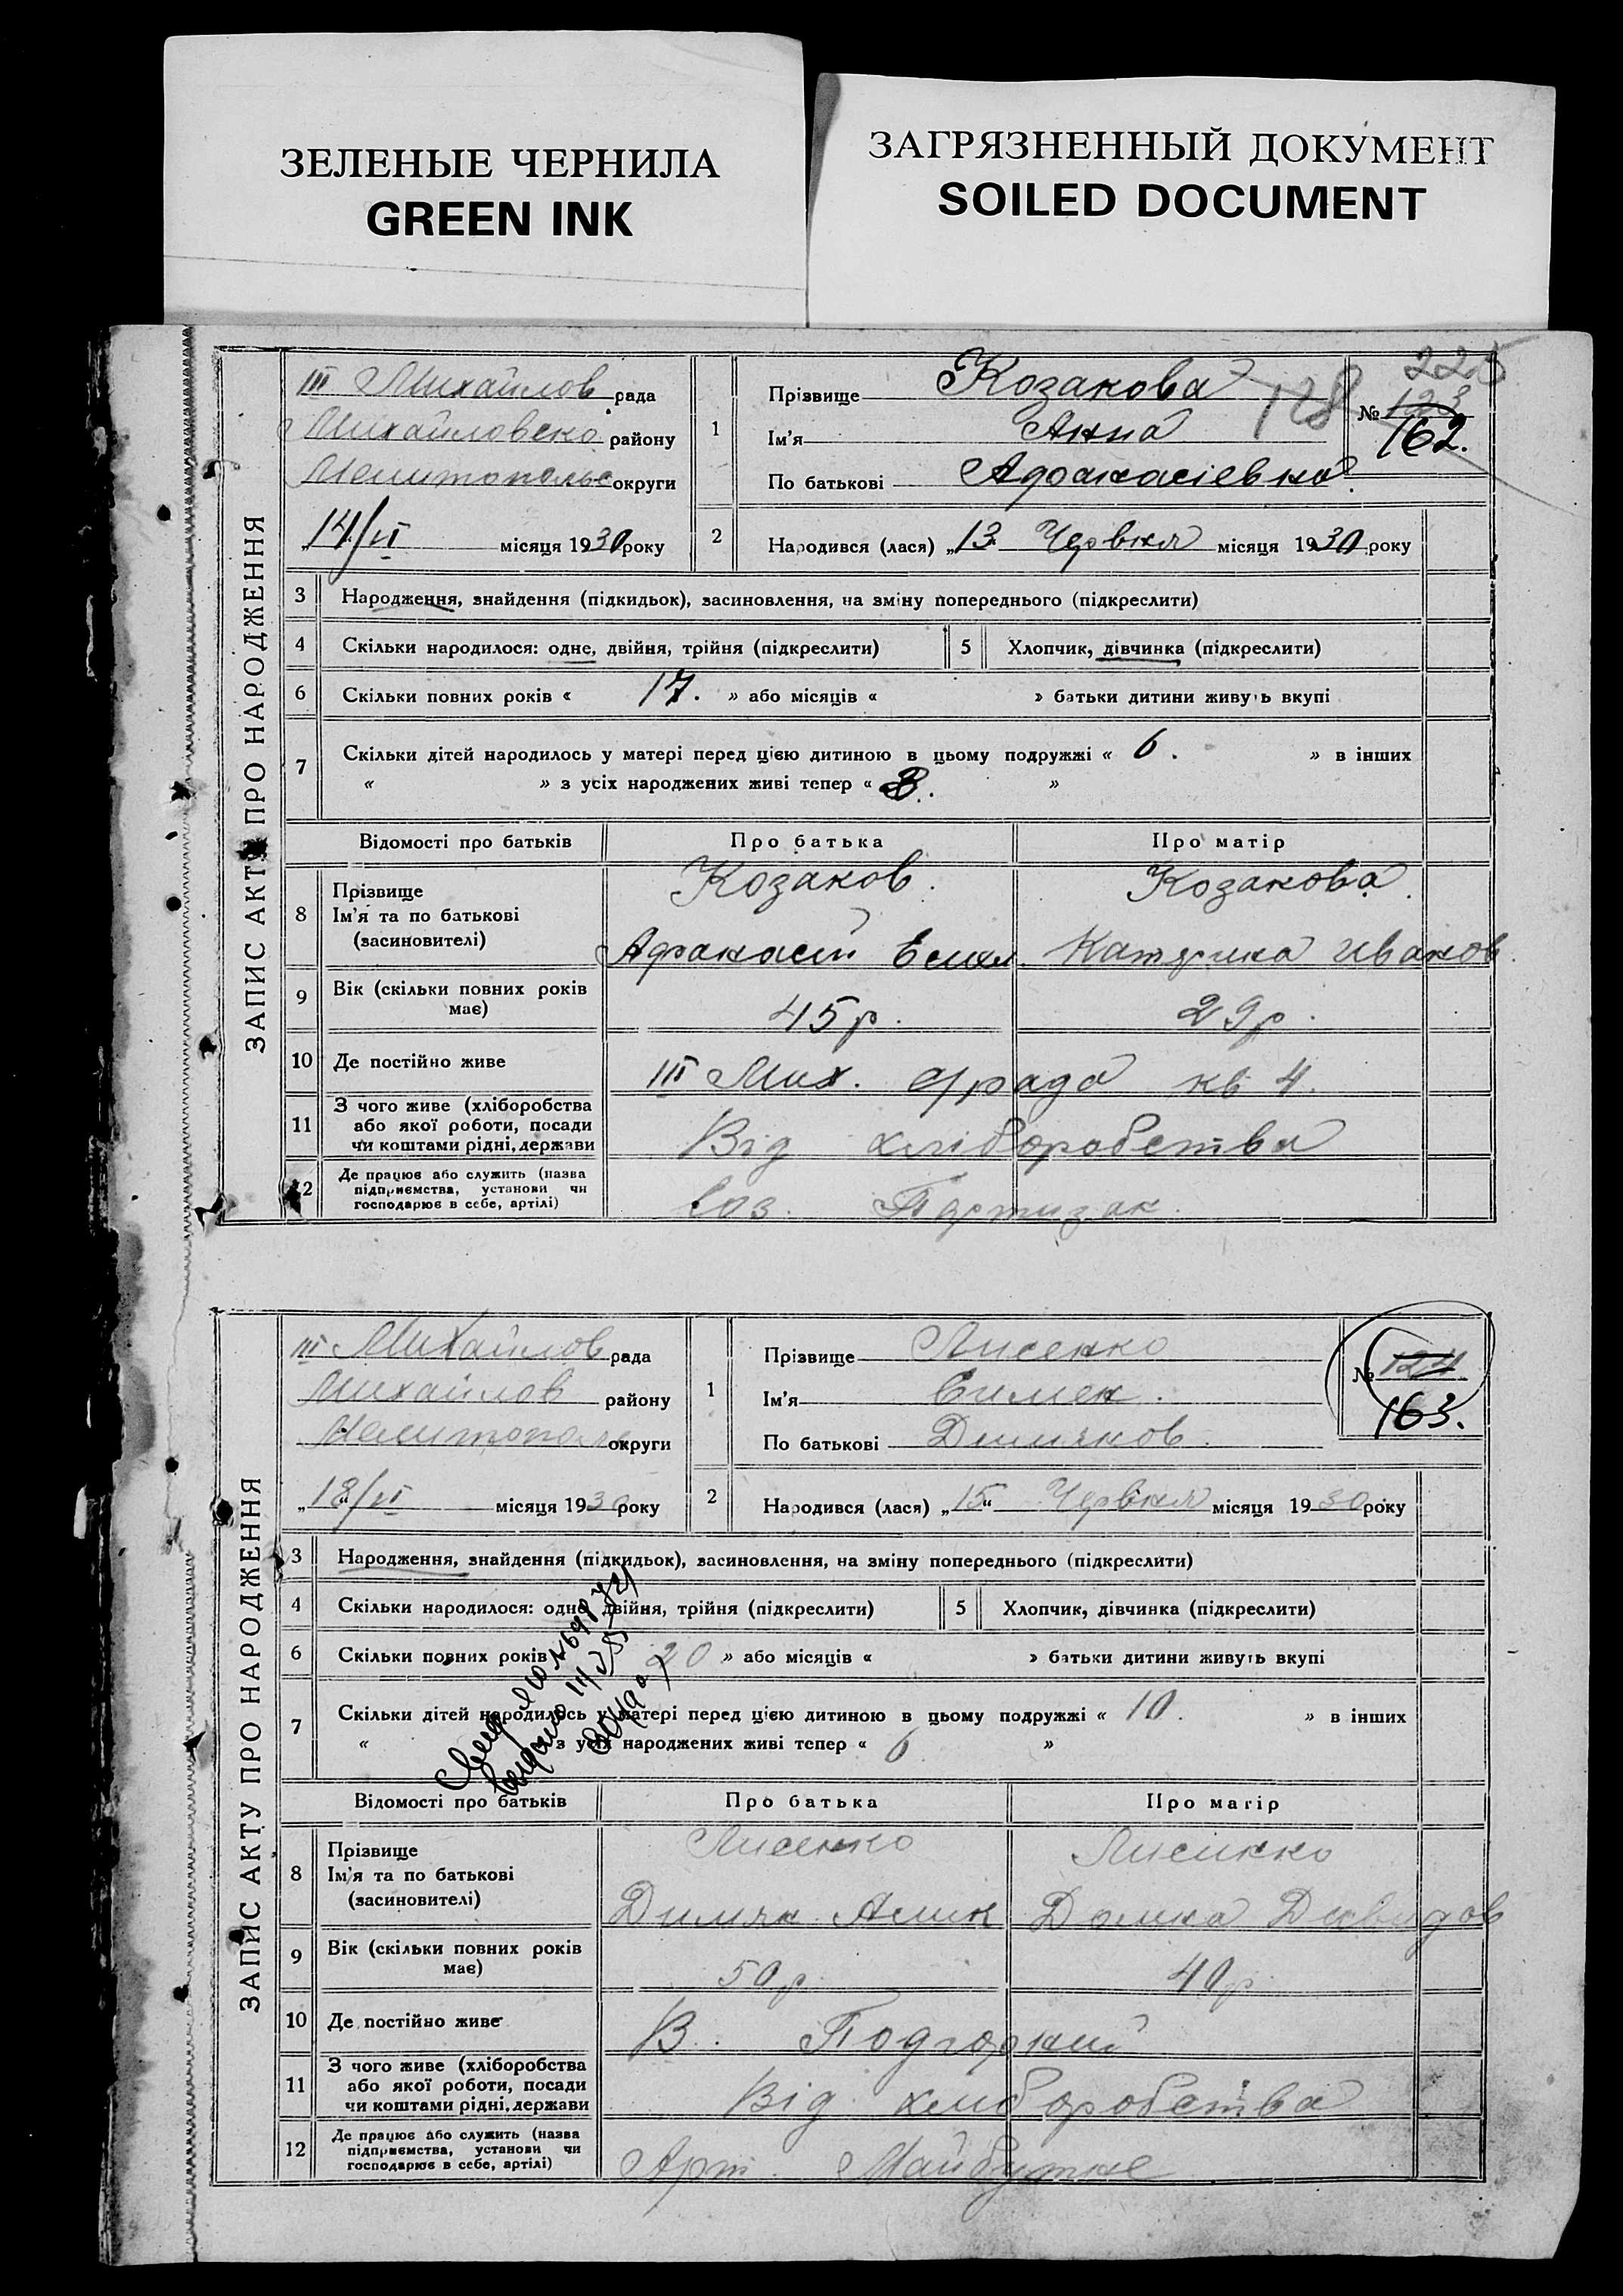 ЗЕЛЕНЫЕ ЧЕРНИЛА
GREEN INK
ЗАГРЯЗНЕННЫЙ ДОКУМЕНТ
SOILED DOCUMENT
ЗАПИС АКТУ ПРО НАРОДЖЕННЯ
225
III Михайлов рада
Михайловско району
Мелитопольс округи
14/VI місяця 1930 року
1 Прізвище Козакова
128
№ 123
162.
Ім'я Анна
По батькові Афанасіевна
2 Народився (лася) „13" Червня місяця 1930 року
3 Народження, знайдення (підкидьок), засиновлення, на зміну попереднього (підкреслити)
4 Скільки народилося: одне, двійня, трійня (підкреслити) 5 Хлопчик, дівчинка (підкреслити)
6 Скільки повних років « 17. » або місяців « » батьки дитини живуть вкупі
7 Скільки дітей народилось у матері перед цією дитиною в цьому подружжі « 6. » в інших
« » з усіх народжених живі тепер « 3. »
Відомості про батьків Про батька Про матір
8 Прізвище Козаков. Козакова.
Ім'я та по батькові
(засиновителі) Афанасій Емил. Катерина Иванов.
9 Вік (скільки повних років
має) 45 р. 29 р.
10 Де постійно живе III Мих. с/рада кв 4.
11 З чого живе (хліборобства
або якої роботи, посади
чи коштами рідні, держави Від хліборобства
12 Де працює або служить (назва
підприємства, установи чи
господарює в себе, артілі) Соз. Партизан.
ЗАПИС АКТУ ПРО НАРОДЖЕННЯ
III Михайлов рада
Михайлов району
Мелитополь округи
18/VI місяця 1930 року
1 Прізвище Лисенко
№ 124
163.
Ім'я Симен.
По батькові Димянов.
2 Народився (лася) „15" Червня місяця 1930 року
3 Народження, знайдення (підкидьок), засиновлення, на зміну попереднього (підкреслити)
4 Скільки народилося: одне, двійня, трійня (підкреслити) 5 Хлопчик, дівчинка (підкреслити)
6 Скільки повних років « 20 » або місяців « » батьки дитини живуть вкупі
7 Скільки дітей народилось у матері перед цією дитиною в цьому подружжі « 10. » в інших
« » з усіх народжених живі тепер « 6 »
Відомості про батьків Про батька Про матір
8 Прізвище Лисенко Лисенко
Ім'я та по батькові
(засиновителі) Димян Домна Давидов
9 Вік (скільки повних років
має) 50 р. 40 р.
10 Де постійно живе В. Подгорний
11 З чого живе (хліборобства
або якої роботи, посади
чи коштами рідні, держави Від хлиборобства
12 Де працює або служить (назва
підприємства, установи чи
господарює в себе, артілі) Арт. Майбутнє